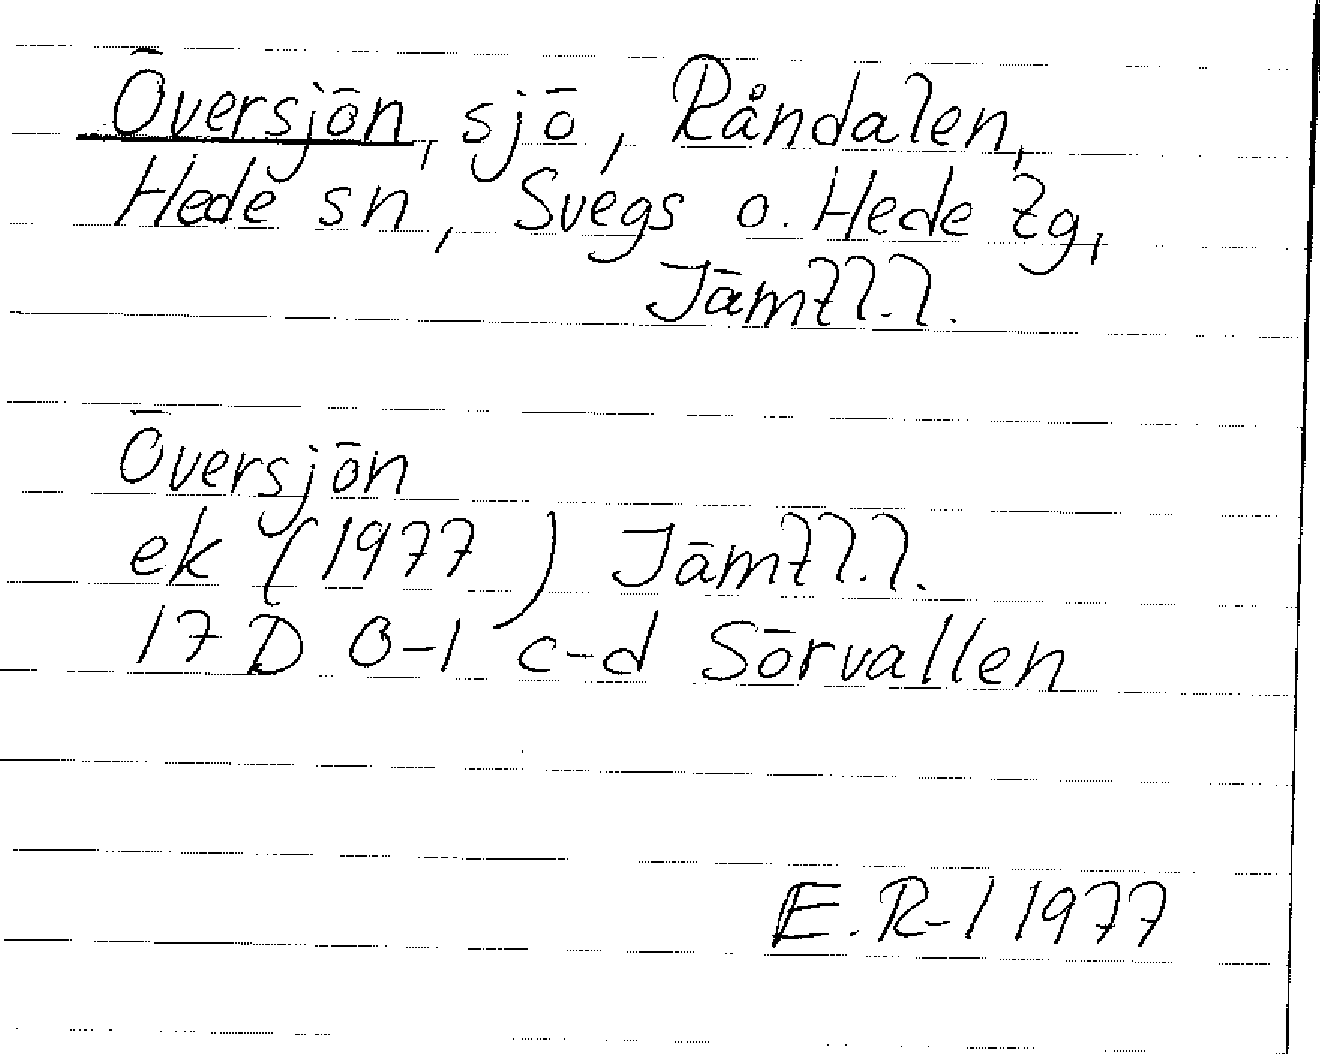 Översjön, sjö, Råndalen,
Hede sn, Svegs o. Hede tg,
Jämtl.l.
Översjön
ek (1977) Jämtl.l.
17 D 0-1 c-d Sörvallen
E.R-l 1977